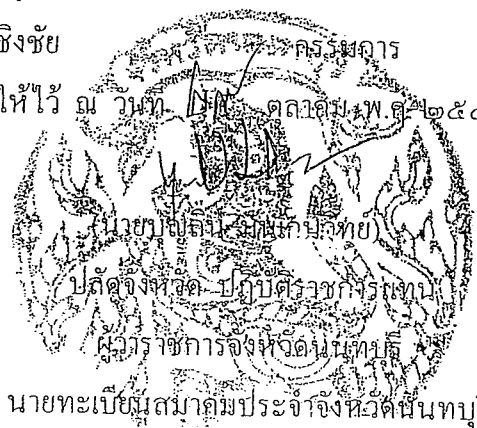 ชิงชัย กรรมการ
ให้ไว้ ณ วันที่ ตุลาคม พ.ศ. ๒๕๔
ปลัดจังหวัด ปฏิบัติราชการแทน
ผู้ว่าราชการจังหวัดนนทบุรี
นายทะเบียนสมาคมประจำจังหวัดนนทบุ